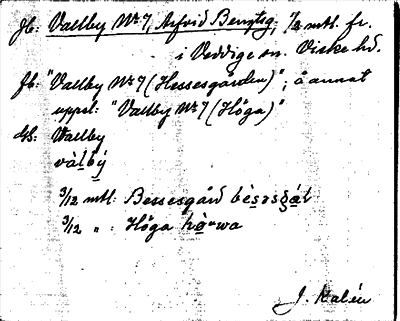 Jb: Vallby Nr 7, Arfvid Bengtsg, 1/2 mtl. fr.
i Veddige sn. Viske hd.
Jb: "Vallby Nr 7 (Hessesgården)"; å annat
uppsl: "Vallby Nr 7 (Höga)"
GS: Vallby
vàlbý
3/12 mtl: Bessesgård
3/12 " : Höga
J. Kalén